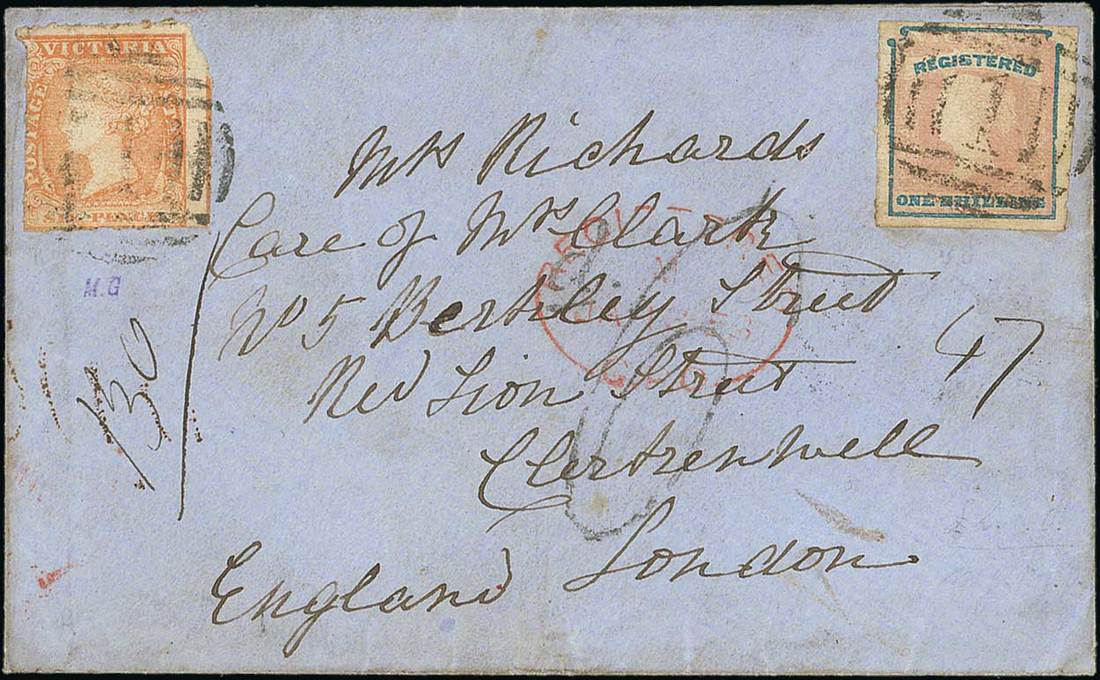 VICTORIA
POSTAGE
PENCE
REGISTERED
ONE SHILLING
Mrs Richards
Care of Mrs Clark
No 5 Berkley Street
Red Lion Street
Clerkenwell
London
England
M.G
130
47
REGISTERED